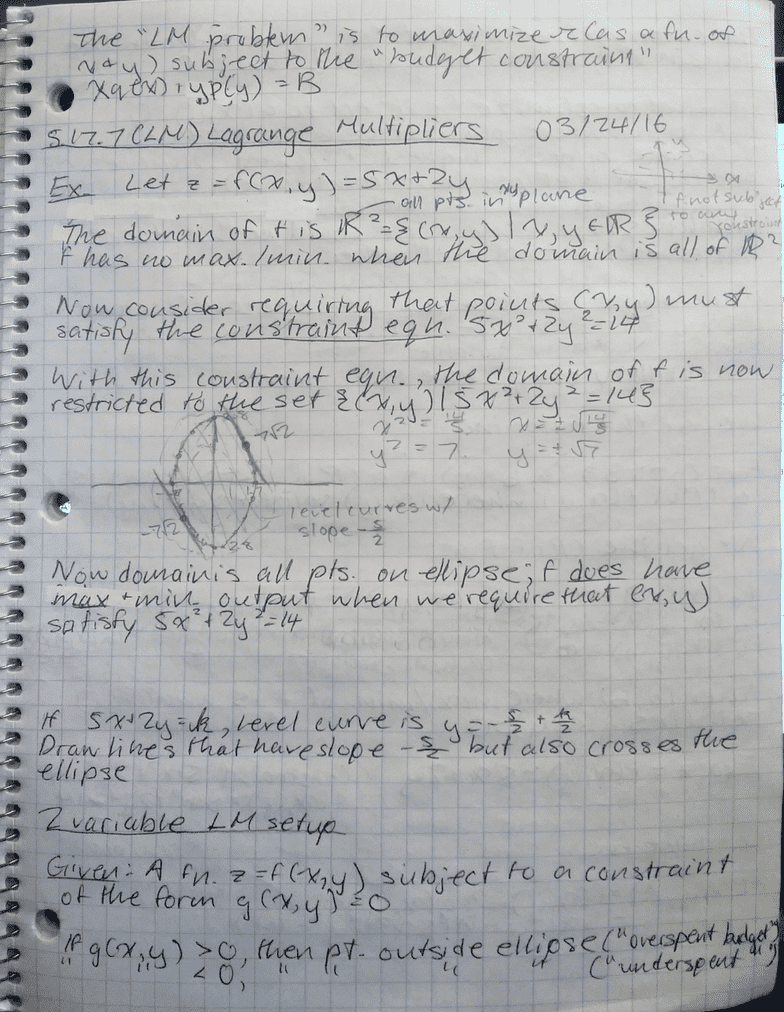 The "LM problem" is to maximize z (as a fn. of
x & y) subject to the "budget constraint"
xq(x) + yp(y) = B
S 17.7 (LM) Lagrange Multipliers 03/24/16
y
x
Ex. Let z = f(x,y) = 5x+2y
all pts. in xy plane
f not subject
to any
constraint
The domain of f is ℝ² = {(x,y) | x,y ∈ ℝ}
f has no max./min. when the domain is all of ℝ²
Now consider requiring that points (x,y) must
satisfy the constraint eqn. 5x²+2y²=14
With this constraint eqn., the domain of f is now
restricted to the set {(x,y) | 5x²+2y²=14}
x² = 14/5 x = ±√14/5
y² = 7 y = ±√7
7√2
-7√2
level curves w/
slope -5/2
Now domain is all pts. on ellipse; f does have
max + min. output when we require that (x,y)
satisfy 5x²+2y²=14
If 5x+2y=k, level curve is y = -5/2 + k/2
Draw lines that have slope -5/2 but also crosses the
ellipse
2 variable LM setup
Given: A fn. z = f(x,y) subject to a constraint
of the form g(x,y) = 0
If g(x,y) > 0, then pt. outside ellipse ("overspent budget")
" " < 0, " " " " ("underspent " ")